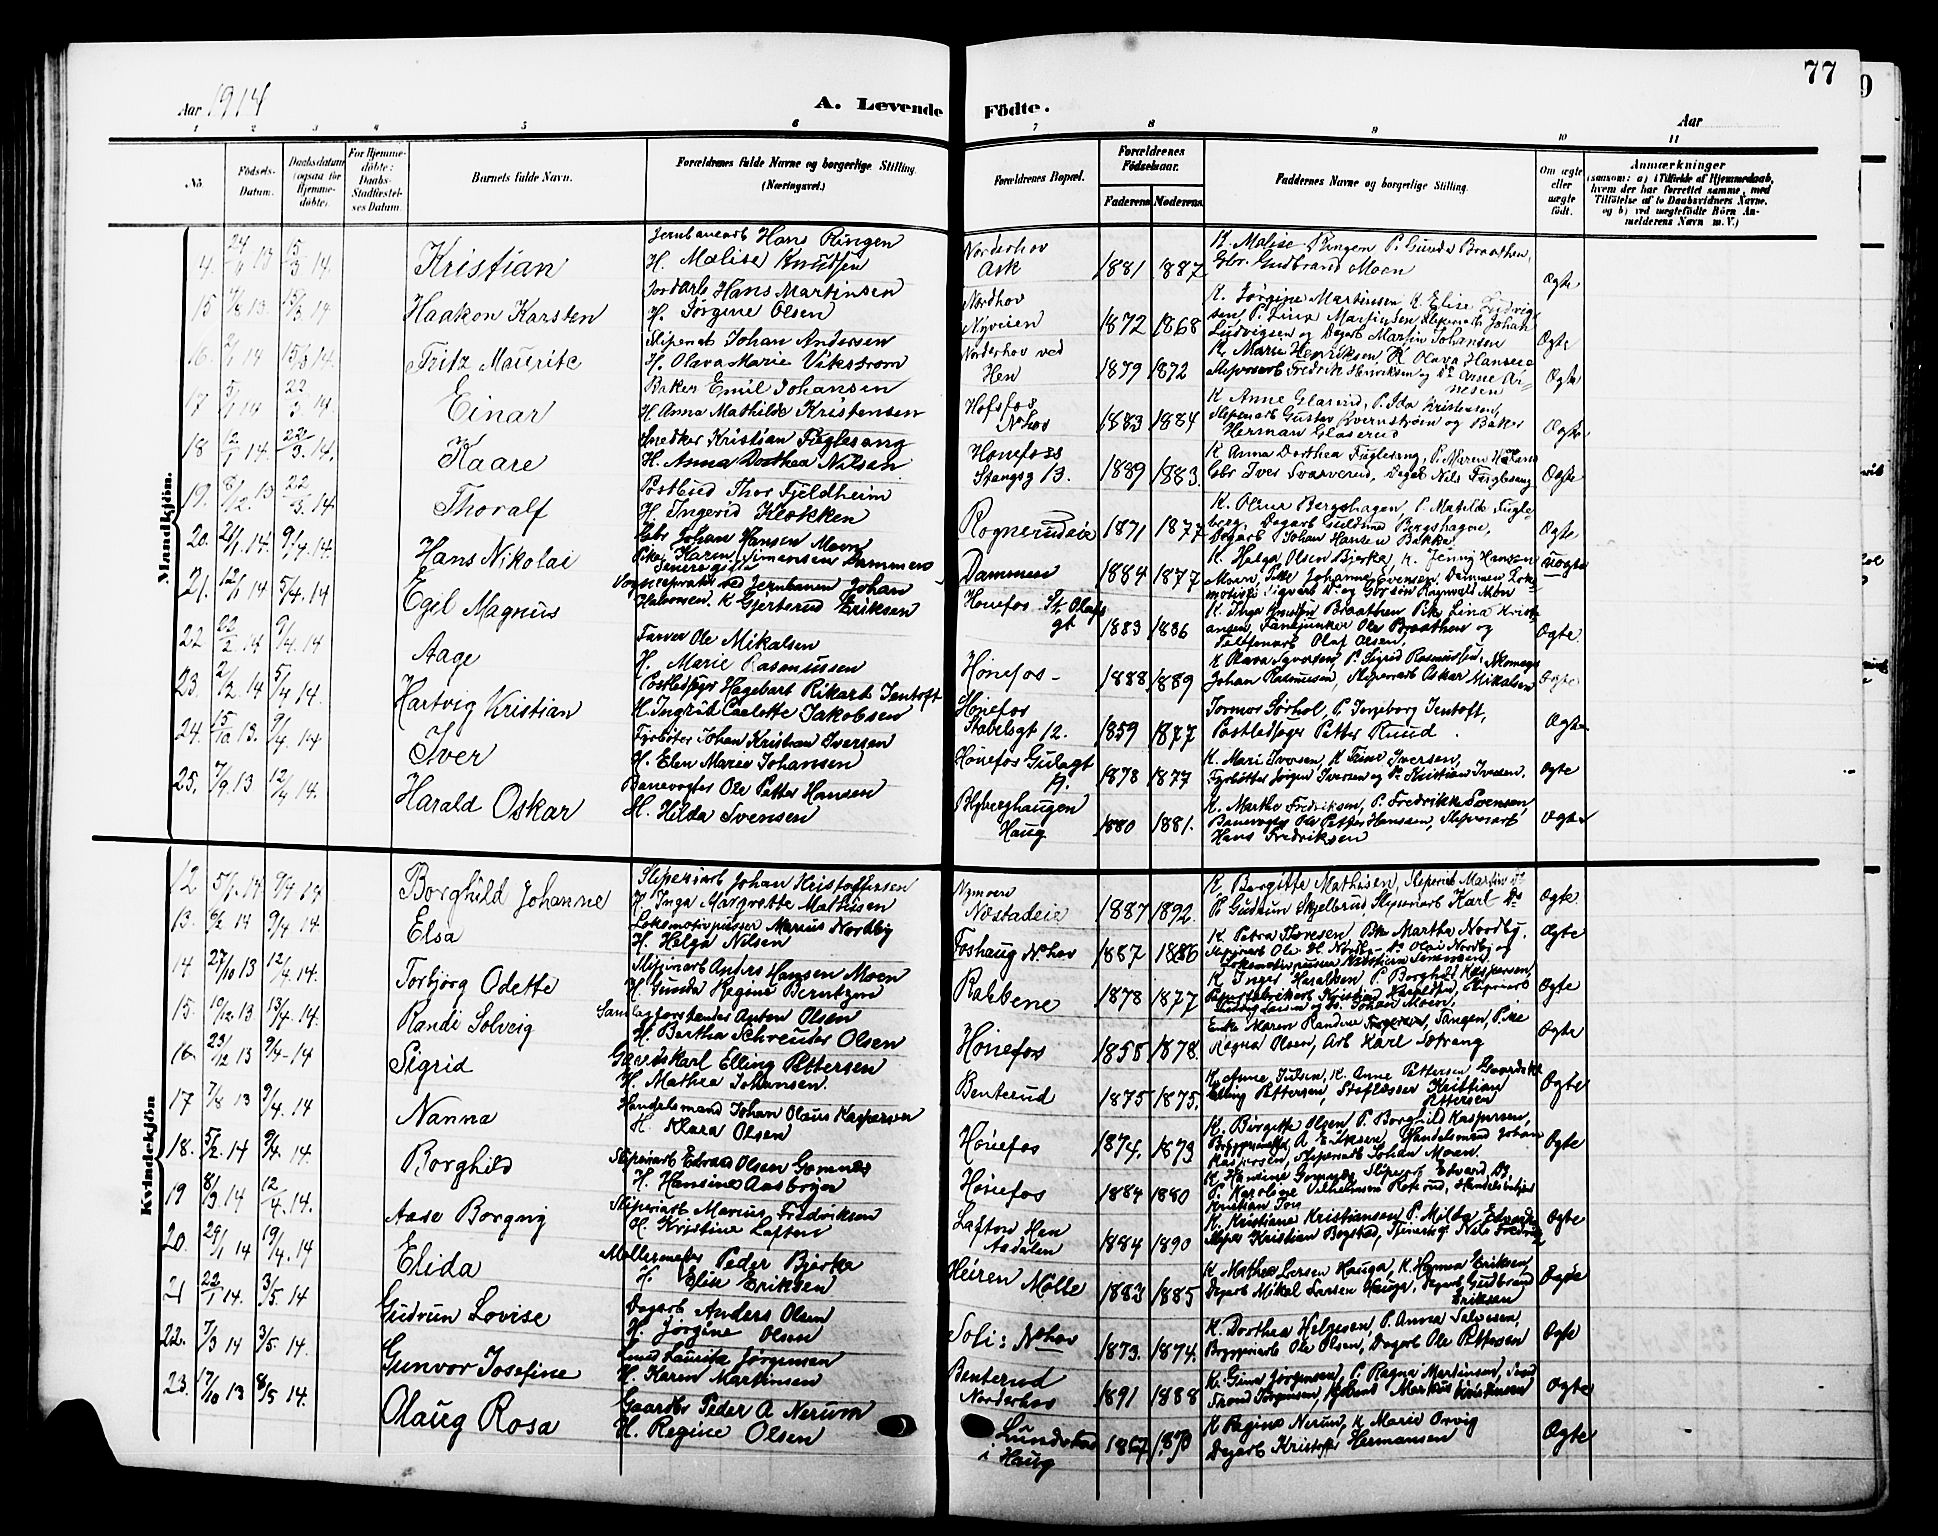 77
Aar 1914
A. Levende Födte.
Aar
1 2 3 4 5 6 7 8 9 10 11
No.
Födsels-Datum.
Daabsdatum (ogsaa for Hjemme-døbte).
For Hjemme-döbte: Daabs-Stadfæstel-ses Datum.
Barnets fulde Navn.
Forældrenes fulde Navne og borgerlige Stilling. (Næringsvei.)
Forældrenes Bopæl.
Forældrenes Födselsaar.
Faderens Moderens
Faddernes Navne og borgerlige Stilling.
Om ægte eller uægte födt.
Anmærkninger
(saasom: a) i Tilfælde af Hjemmedaab, hvem der har forrettet samme, med Tilföielse af to Daabsvidners Navne, og b) ved uægtefödte Börn An-melderens Navn m. V.)
Mandkjön.
4. 13 15/3 14. Kristian
Jernbanearb Hans Ringen
H. Malise Knudsen
Norderhov Ask 1881 1887
K. Malise Ringen P. Gunda Braathen, Gbr. Gudbrand Moen
Ægte
15 13. 15/3 14 Haakon Karsten
Jordarb Hans Martinsen
H. Jørgine Olsen
Nordhov Nyveien 1872 1868
K. Jørgine Martinsen, K. Elise Ludvigsen P. Lina Martinsen Slipearb Johan Ludvigsen og Dagarb Martin Johansen
Ægte
16. 2/1 14 15/3 14. Fritz Mauritz
Slipearb Johan Andersen
H. Olava Marie Vikstrøm
Norderhov ved Hen 1879 1872
K. Marie Henriksen, K Olava Hansen Sliperiarb Fredrik Henriksen og Do Arne Arnesen
Ægte
17 5/1 14 22/3 14. Einar
Baker Emil Johansen
H. Anna Mathilde Kristensen
Hofsfos Nhov 1883 1884
K Anne Glaserud, P. Ida Kristensen, Sliperiarb Gustav Kvernstrøm og Baker Herman Glaserud
Ægte
18 12/1 14. 22/3 14. Kaare
Snedker Kristian Fuglesang
H. Anna Dorthea Nilsen
Hønefoss Stangsg 13. 1889 1883.
K Anna Dorthea Fuglesang, P. Maren Gbr Iver Svarverud, Dagarb Nils Fuglesang
Ægte
19. 8/12. 13 22/3. 14. Thoralf
Postbud Thor Fjeldheim
H. Ingerid Klækken
Rognerudeie 1871 1877
K. Oline Bergshagen, P. Matilde Fugleberg, Dagarb Guldbrand Bergshagen, Dagarb Johan Hansen Bakke
Ægte
20. 14. 9/4. 14. Hans Nikolai
Gbr Johan Hansen Moen
Pike Karen Simensen Dammen
Senere gifte
Dammen 1884 1877
K. Helga Olsen Bjerke, K. Jenny Hansen Moen, Pike Johanne Evensen Dammen, Lokomotivf Sigvart Do og Gbrsøn Ragnvald Moen
uægte
21. 12/1 14 5/4. 14 Egil Magnus
Vognreparatør ved Jernbanen Johan Halvorsen. K Gjertrud Eriksen
Hønefos St. Olafs gt 1883 1886
K. Inga Knudsen Braathen Pike Lina Kristiansen, Fanejunker Ole Braathen og Telefonarb Olaf Olsen,
Ægte.
22 22/2 14 9/4. 14 Aage
Farver Ole Mikalsen
H. Marie Rasmussen
Hønefos - 1888 1889
K Olava Syversen, P. Sigrid Rasmussen, Johan Rasmussen, Sliperiarb Oskar Mikalsen
Ægte
23. 2/2 14 5/4 14. Hartvig Kristian
Postledsager Hagebart Rikart Jentoft
H. Ingrid Carlotte Jakobsen
Hønefos Stabelsgt 12. 1859 1877
Tormor Sørhol, P. Ingeborg Jentoft, Postledsager Petter Ruud.
Ægte
24. 15/10 13. 9/4. 14 Iver
Fyrbøter Johan Kristian Iversen
H. Elen Marie Johansen
Hønefos Gulagt 1878 1877
K. Mari Iversen, K Trine Iversen, Fyrbøtter Jørgen Iversen og Do Kristian Iversen.
Ægte
25. 7/9 13 12/4 14. Harald Oskar
Banevogter Ole Petter Hansen
H. Hilda Svensen
Blyberghaugen Haug 1880 1881.
K. Marthe Fredriksen, P. Fredrikke Svensen, Banevogter Ole Petter Hanssen, Sliperiarb Hans Fredriksen
Ægte
Kvindekjön
12 5/1. 14 9/4 14 Borghild Johanne
Sliperiarb Johan Kristoffersen
H. Inga Margrette Mathisen
Nymoen Næstadeie 1887 1892.
K Borgitte Mathisen, Sliperiarb Martin Do P. Gudrun Skjelbred, Sliperiarb Karl Do
Ægte
13. 6/2 14 9/4 14. Elsa
Lokomotivpusser Marius Nordby
H. Helga Nilsen
Foshaug Nhov 1887 1886
K. Petra Thoresen, Pike Martha Nordby, Sliperiarb Ole H. Nordby Do Olai Nordby og Lokomotivpusser Kristian Simensen.
Ægte
14 27/10 13 12/4. 14. Torbjørg Odette
Sliperiarb Anders Hansen Moen
H. Gunda Regine Berntzen
Rabbene 1878 1877
K. Inger Haraldsen, P. Borghild Kaspersen, Papirfabrikarb Kristian Haraldsen, Sliperiarb Ludvig Larsen og Do. Johan Moen.
Ægte
15. 19/12 13 13/4. 14. Randi Solveig
Samlagforstander Anton Olsen
H. Bertha Schreuder Olsen
Hønefos 1858 1878.
Enke Maren Randine Tangen, Pike Ragna Olsen, Arb Karl Sætrang
Ægte
16 23/12 13 9/4 - 14 Sigrid
Gaardskarl Elling Pettersen
H. Mathea Johansen.
Benterud 1875 1875.
K. Anne Julsen, K. Anne Pettersen, Gaardsk Elling Pettersen, Stoflæsser Kristian Pettersen
Ægte
17 7/8 13 9/4. 14 Nanna
Handelsmand Johan Olaus Kaspersen
H. Klara Olsen
Hønefos 1874. 1873
K. Birgitte Olsen, P. Borghild Kaspersen, A Eriksen, Handelsmnd Johan Kaspersen, Sliperiarb Johan Moen.
Ægte
18. 5/2. 14 9/4. 14. Borghild
Sliperiarb Edvard Olsen Gomnes
H. Hansine Aasbøyen
Hønefos 1884 1880
K Hansine Gomnes, Sliperiarb Edvard Do, P. Karoline Vilhelmsen Koterud, Handelsbetjent Kristian
Ægte
19 8/3. 14 12/4. 14. Aase Borgny
Sliperiarb Marius Fredriksen
H. Kristine Lafton
Lafton Hen Aadalen 1884 1890
K. Kristiane Kristiansen P. Milda Edvardsen Sliper Kristian Bogstad, Nils Fredriksen
Ægte
20. 29/1 14 19/4. 14 Elida
Møllermester Peder Bjerke
H. Elise Eriksen
Heiren Mølle 1883 1885
K. Mathea Larsen Hauga, K. Hanna Eriksen Dagarb Mikal Larsen Hauga, Dagarb Gudbrand Eriksen
Ægte
21 22/1 14. 3/5. 14 Gudrun Lovise
Dagarb Anders Olsen
H. Jørgine Olsen
Soli: Nhov 1873. 1874.
K. Dorthea Helgesen, P. Anna Salvesen, Bryggeriarb Ole Olsen, Dagarb Ole Pettersen
Ægte
22. 7/3 14 3/5. 14. Gunvor Josefine
Smed Laurits Jørgensen
H. Karen Martinsen
Benterud Norderhov 1891 1888
K. Gina Jørgensen, P. Ragna Martinsen, Smed Trond Jørgensen, Markus Kristinsen
Ægte
23. 17/10 13 8/5 14. Olaug Rosa
Gaardbr Peder A Nerum
H. Regine Olsen
Lundstad i Haug 1867 1870
K Regine Nerum, K Marie Orvig Dagarb Kristoffer Hermansen
Ægte